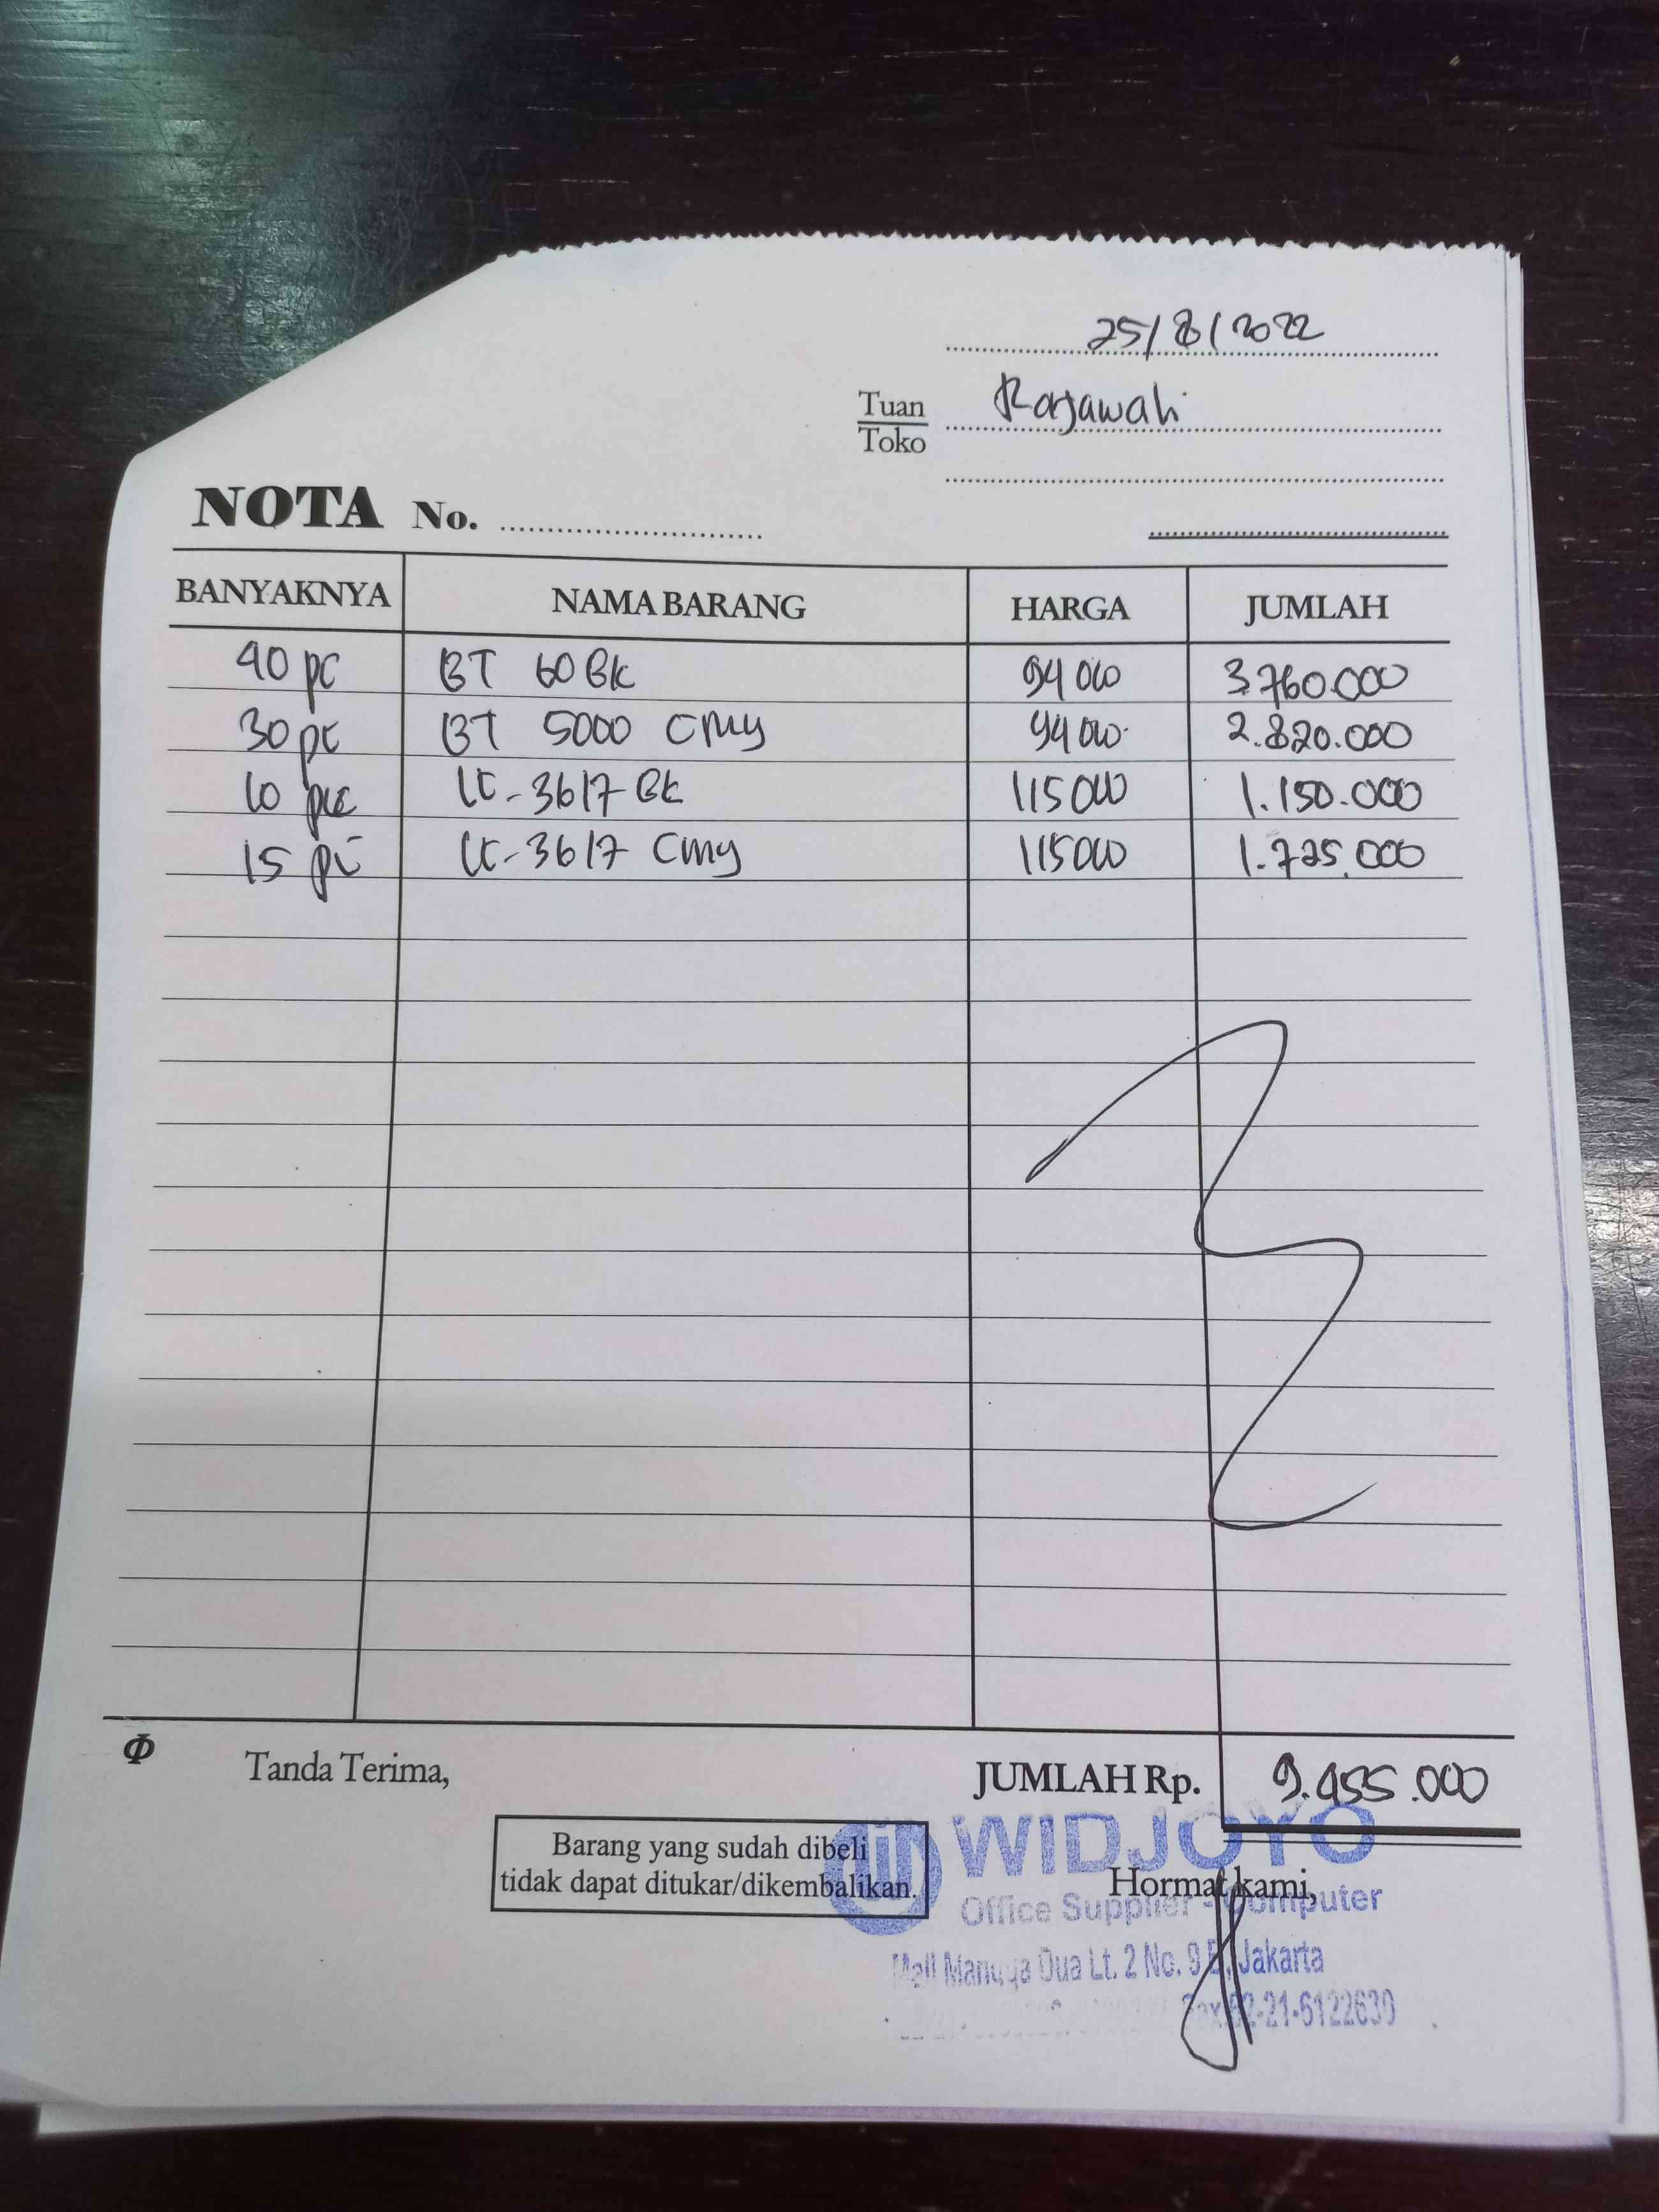 25/8/2022
Tuan Rajawali
Toko
NOTA No.
BANYAKNYA NAMA BARANG HARGA JUMLAH
40 pc BT 60 BK 94 000 3.760.000
30 pc BT 5000 CMY 94 000 2.820.000
10 pc LC-3617 BK 115 000 1.150.000
15 pc LC-3617 CMY 115 000 1.725.000
Φ Tanda Terima, JUMLAH Rp. 9.455.000
Barang yang sudah dibeli
tidak dapat ditukar/dikembalikan.
WIDJOYO
Hormat kami,
Office Supplier - Computer
Mall Mangga Dua Lt. 2 No. 9 Jakarta
Fax.62-21-6122630